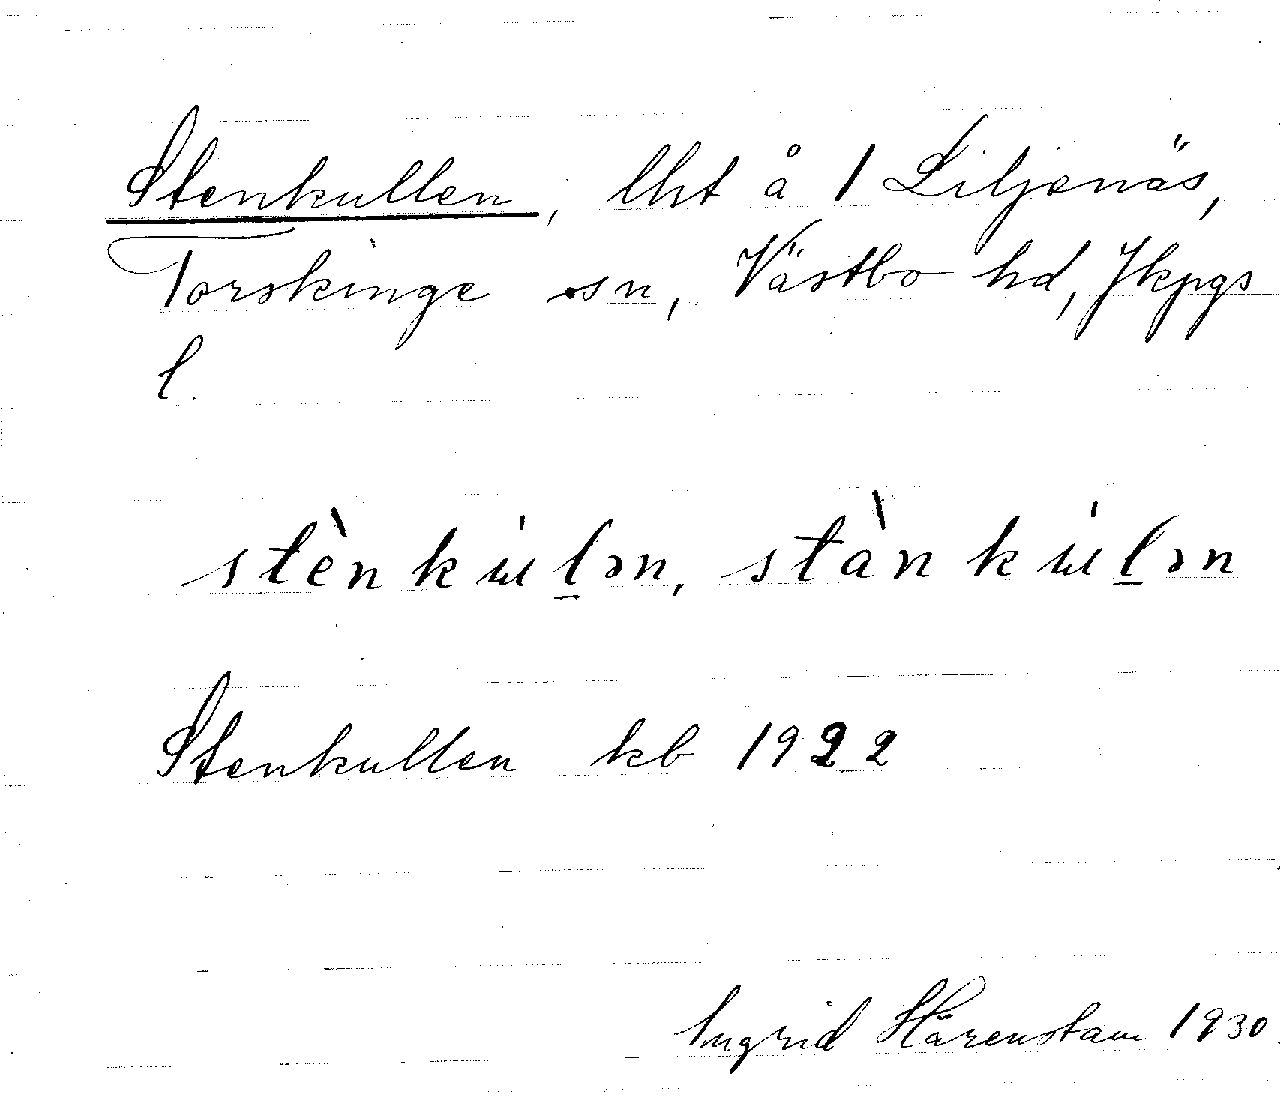 Stenkullen, lht å 1 Liljenäs,
Torskinge sn, Västbo hd, Jkpgs
l.
stènku̇l̲ən, stànku̇l̲ən
Stenkullen kb 1922
Ingrid Härenstam 1930